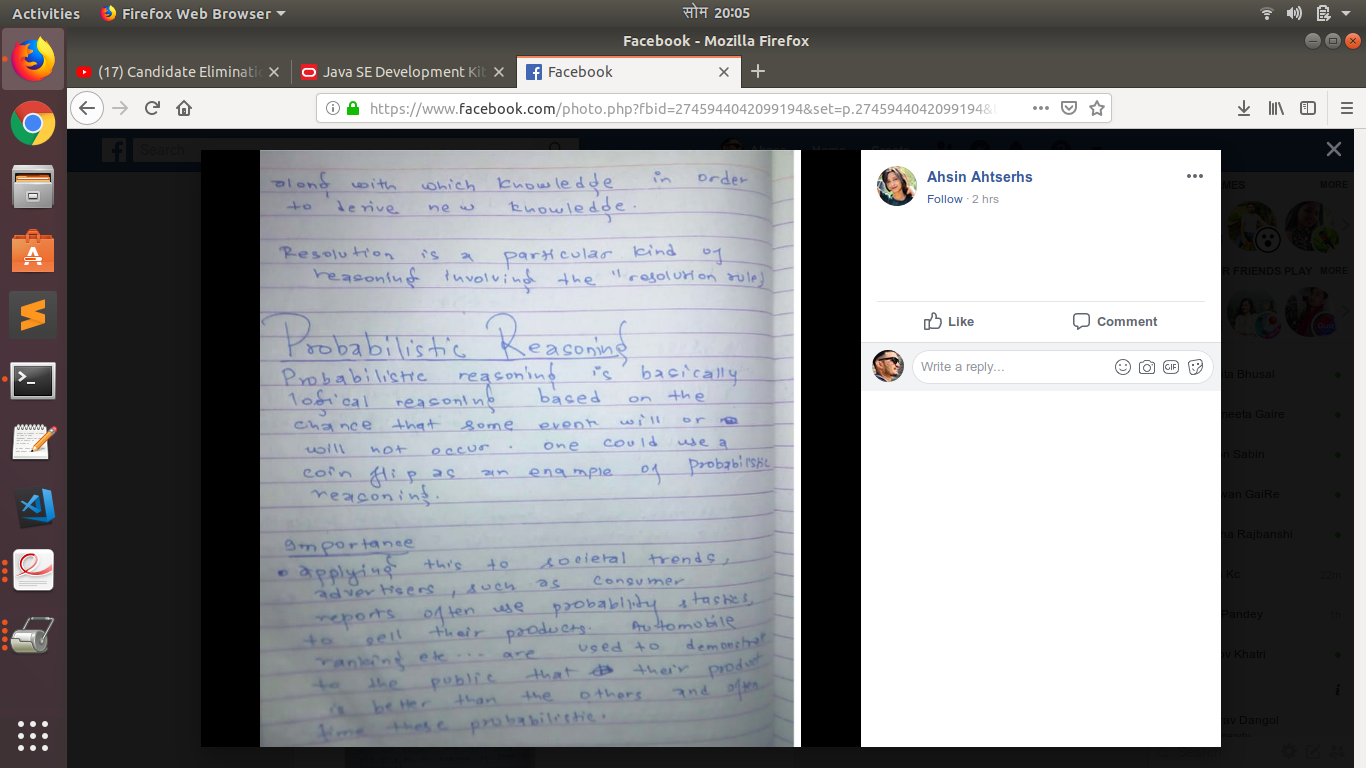 Activities
Firefox Web Browser
सोम 20:05
Facebook - Mozilla Firefox
(17) Candidate Eliminatio
Java SE Development Kit
Facebook
https://www.facebook.com/photo.php?fbid=2745944042099194&set=p.2745944042099194&
Search
along with which knowledge in order
to derive new knowledge.
Resolution is a particular kind of
reasoning involving the "resolution rule)
Probabilistic Reasoning
Probabilistic reasoning is basically
logical reasoning based on the
chance that some event will or
will not occur. One could use a
coin flip as an enample of probabilstic
reasoning.
Importance
• applying this to societal trends,
advertisers, such as consumer
reports often use probability stastics,
to sell their products. Automobile
ranking etc... are used to demonstrat
to the public that their product
is better than the others and often
time these probabilistic.
Ahsin Ahtserhs
Follow · 2 hrs
Like
Comment
Write a reply...
GIF
MES
MORE
R FRIENDS PLAY
MORE
ta Bhusal
neeta Gaire
n Sabin
wan GaiRe
na Rajbanshi
Kc
22m
Pandey
ov Khatri
rav Dangol